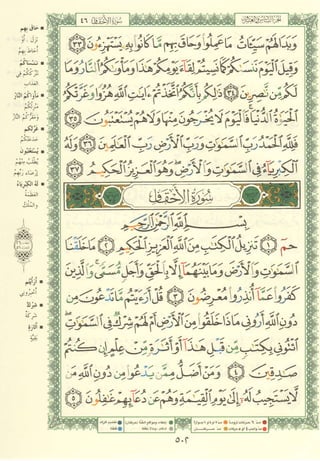 سُورَةُ الأَحْقَافِ ٤٦
وَبَدَا لَهُمْ سَيِّئَاتُ مَا عَمِلُوا وَحَاقَ بِهِم مَّا كَانُوا بِهِ يَسْتَهْزِءُونَ ﴿٣٣﴾
وَقِيلَ الْيَوْمَ نَنسَىٰكُمْ كَمَا نَسِيتُمْ لِقَاءَ يَوْمِكُمْ هَٰذَا وَمَأْوَىٰكُمُ النَّارُ وَمَا
لَكُم مِّن نَّٰصِرِينَ ﴿٣٤﴾ ذَٰلِكُم بِأَنَّكُمُ اتَّخَذْتُمْ ءَايَٰتِ اللَّهِ هُزُوًا وَغَرَّتْكُمُ
الْحَيَوٰةُ الدُّنْيَا فَالْيَوْمَ لَا يُخْرَجُونَ مِنْهَا وَلَا هُمْ يُسْتَعْتَبُونَ ﴿٣٥﴾
فَلِلَّهِ الْحَمْدُ رَبِّ السَّمَٰوَٰتِ وَرَبِّ الْأَرْضِ رَبِّ الْعَٰلَمِينَ ﴿٣٦﴾ وَلَهُ
الْكِبْرِيَاءُ فِي السَّمَٰوَٰتِ وَالْأَرْضِ وَهُوَ الْعَزِيزُ الْحَكِيمُ ﴿٣٧﴾
سُورَةُ الْأَحْقَافِ
بِسْمِ اللَّهِ الرَّحْمَٰنِ الرَّحِيمِ
حمٓ ﴿١﴾ تَنزِيلُ الْكِتَٰبِ مِنَ اللَّهِ الْعَزِيزِ الْحَكِيمِ ﴿٢﴾ مَا خَلَقْنَا
السَّمَٰوَٰتِ وَالْأَرْضَ وَمَا بَيْنَهُمَا إِلَّا بِالْحَقِّ وَأَجَلٍ مُّسَمًّى وَالَّذِينَ
كَفَرُوا عَمَّا أُنذِرُوا مُعْرِضُونَ ﴿٣﴾ قُلْ أَرَءَيْتُم مَّا تَدْعُونَ مِن
دُونِ اللَّهِ أَرُونِي مَاذَا خَلَقُوا مِنَ الْأَرْضِ أَمْ لَهُمْ شِرْكٌ فِي السَّمَٰوَٰتِ
ائْتُونِي بِكِتَٰبٍ مِّن قَبْلِ هَٰذَا أَوْ أَثَٰرَةٍ مِّنْ عِلْمٍ إِن كُنتُمْ
صَٰدِقِينَ ﴿٤﴾ وَمَنْ أَضَلُّ مِمَّن يَدْعُوا مِن دُونِ اللَّهِ مَن
لَّا يَسْتَجِيبُ لَهُ إِلَىٰ يَوْمِ الْقِيَٰمَةِ وَهُمْ عَن دُعَائِهِمْ غَٰفِلُونَ ﴿٥﴾
٥٠٢